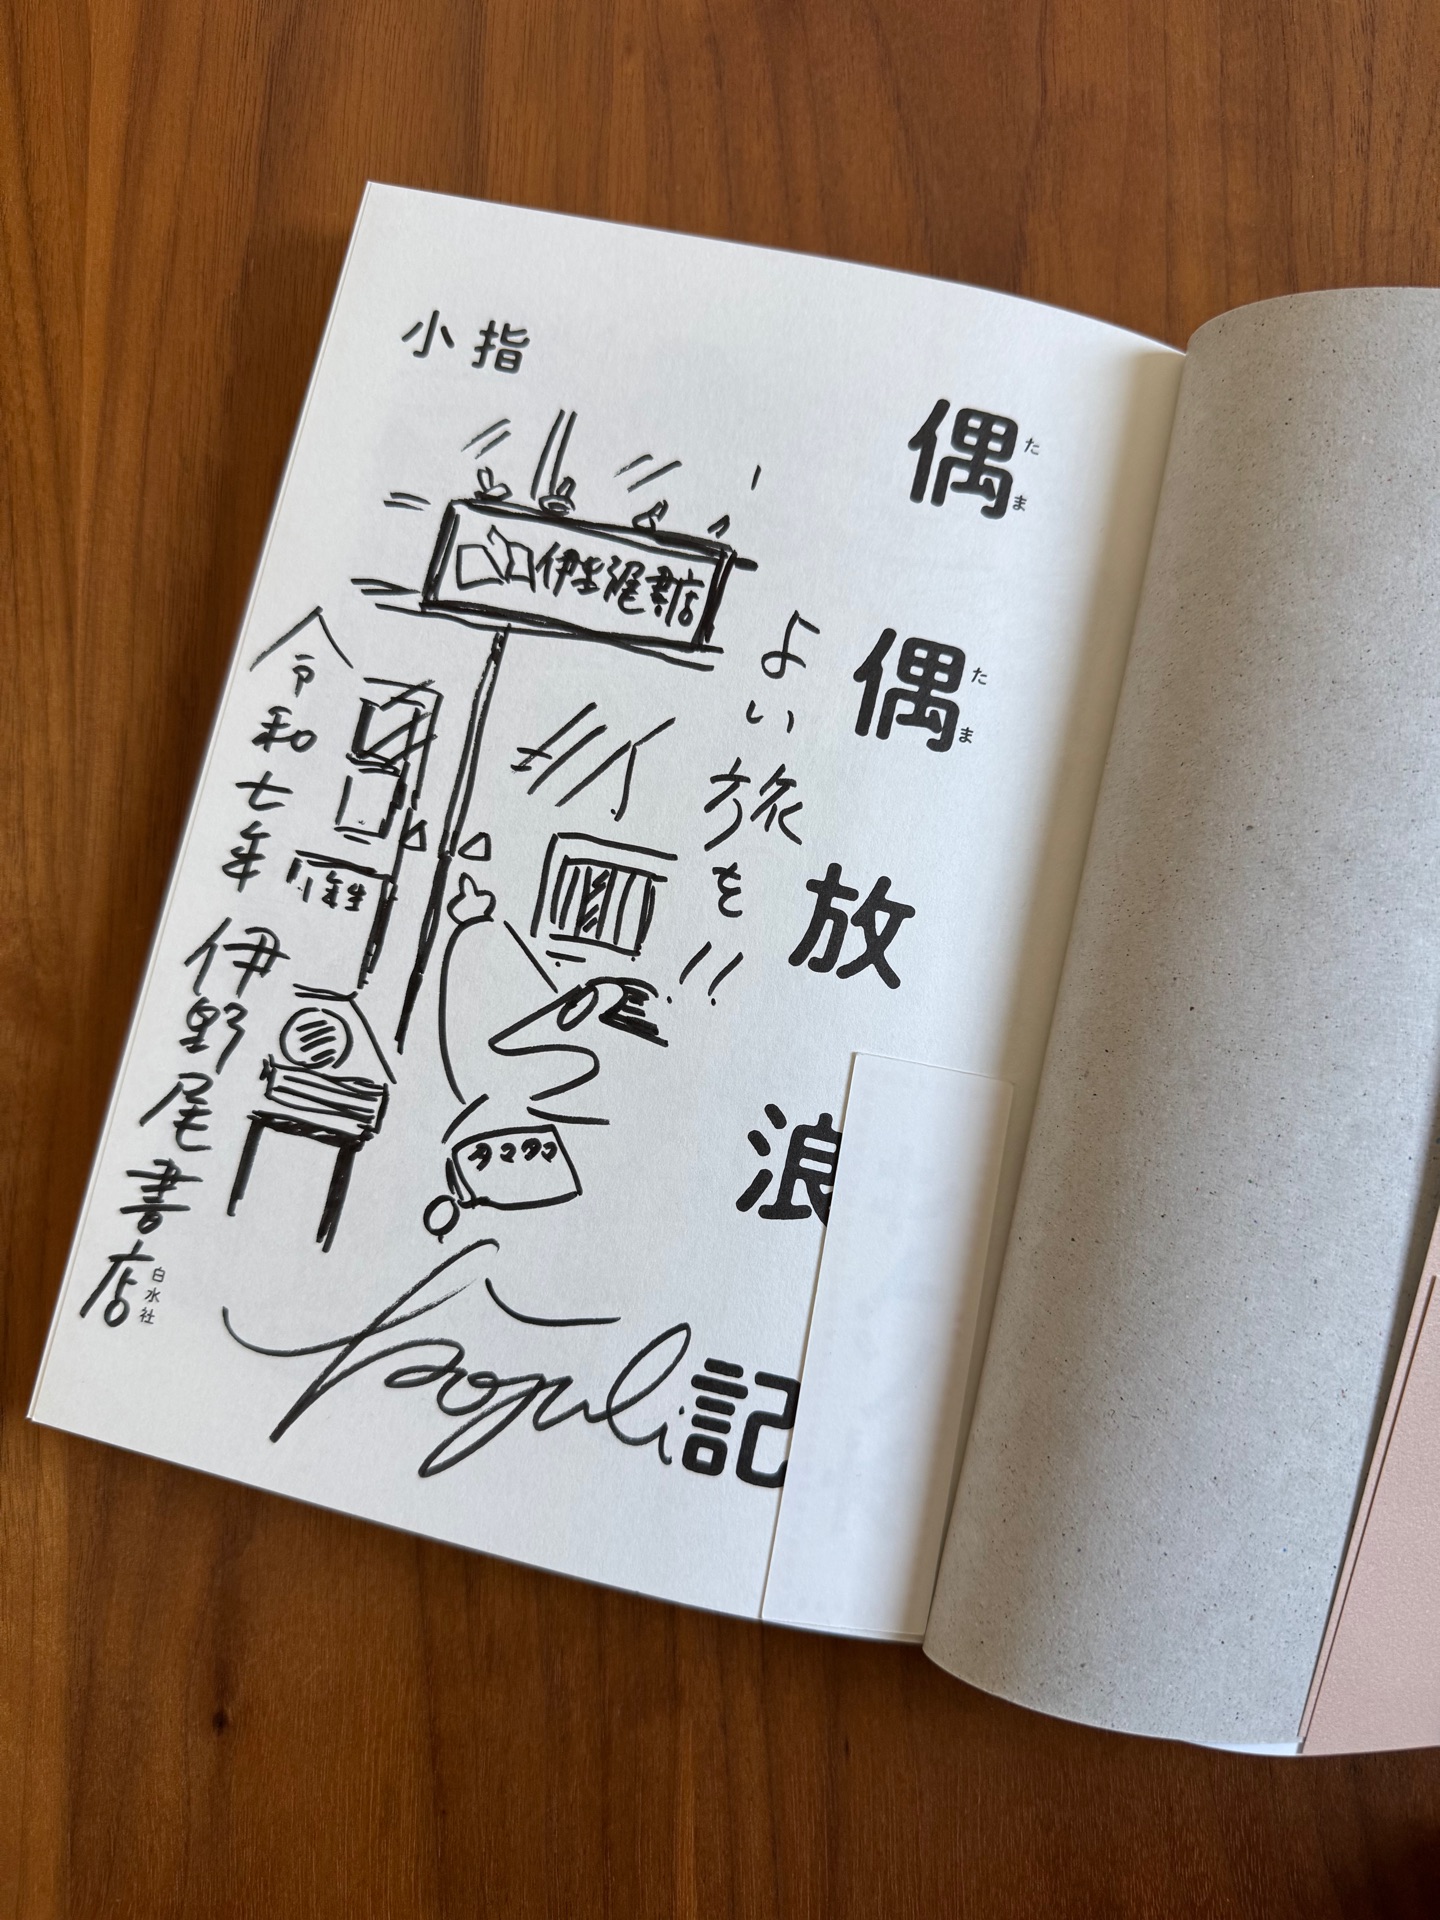 偶偶放浪記
たま
たま
小指
伊野尾書店
よい旅を!!
タマタマ
令和七年
伊野尾書店
白水社